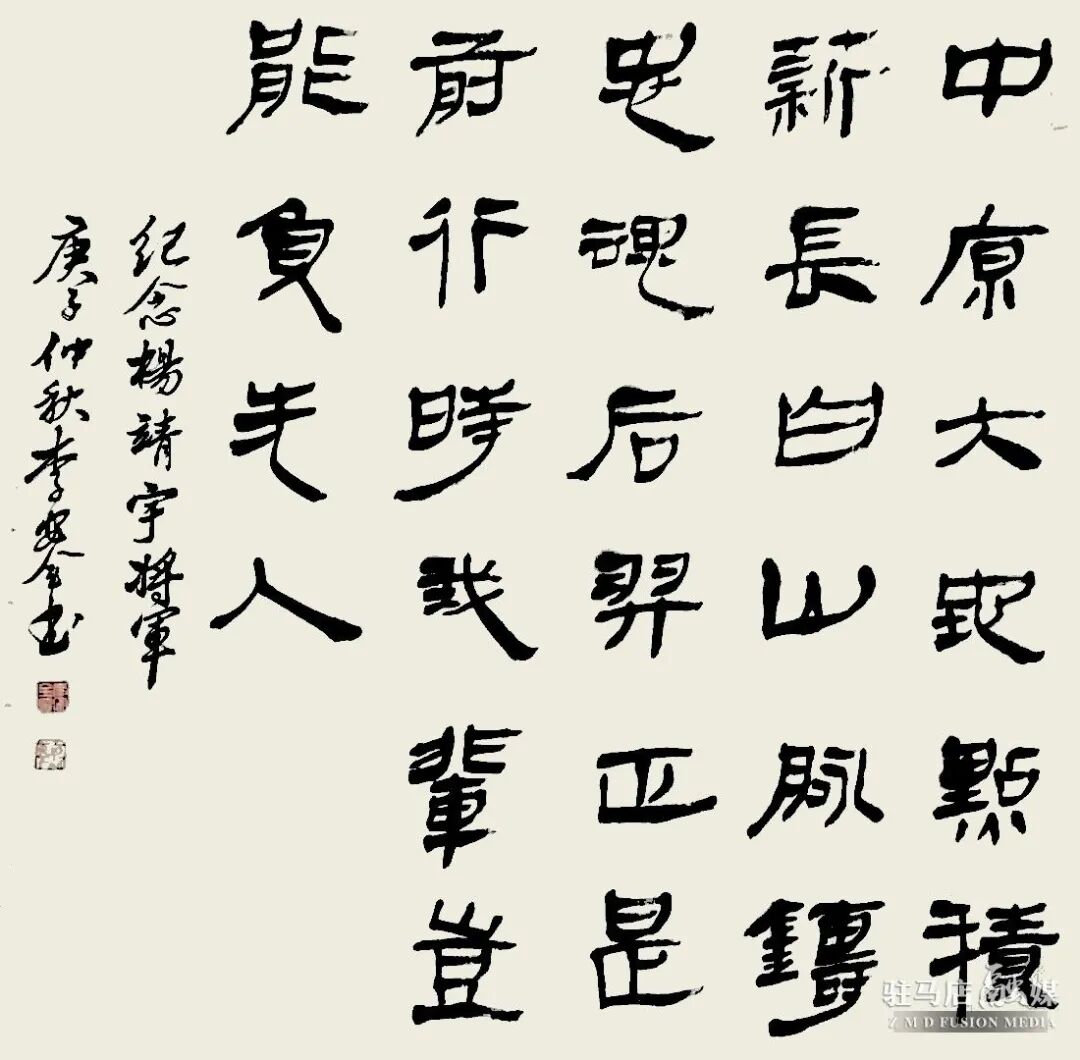 中原大地點積
薪長白山脉鑄
忠魂后羿正是
前行時我輩豈
能負先人
纪念楊靖宇將軍
庚子仲秋李书
驻马店融媒
ZMD FUSION MEDIA